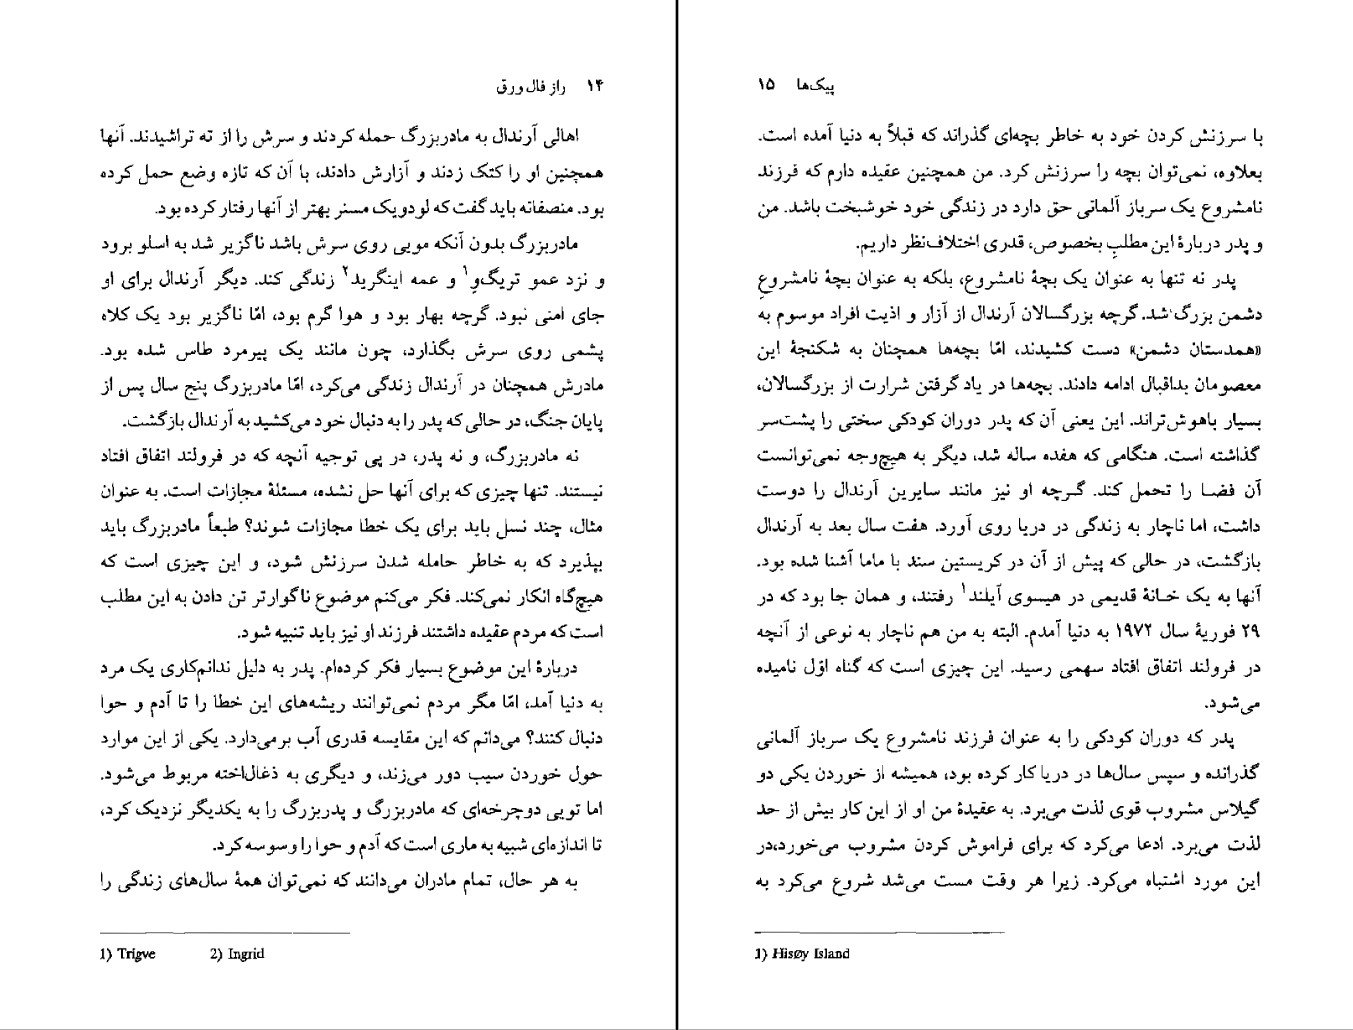 ۱۴ راز فال ورق
اهالی آرندال به مادربزرگ حمله کردند و سرش را از ته تراشیدند. آنها
همچنین او را کتک زدند و آزارش دادند، با آن که تازه وضع حمل کرده
بود. منصفانه باید گفت که لودویک مسنر بهتر از آنها رفتار کرده بود.
مادربزرگ بدون آنکه مویی روی سرش باشد ناگزیر شد به اسلو برود
و نزد عمو تریگوِ۱ و عمه اینگرید۲ زندگی کند. دیگر آرندال برای او
جای امنی نبود. گرچه بهار بود و هوا گرم بود، امّا ناگزیر بود یک کلاه
پشمی روی سرش بگذارد، چون مانند یک پیرمرد طاس شده بود.
مادرش همچنان در آرندال زندگی می‌کرد، امّا مادربزرگ پنج سال پس از
پایان جنگ، در حالی که پدر را به دنبال خود می‌کشید به آرندال بازگشت.
نه مادربزرگ، و نه پدر، در پی توجیه آنچه که در فرولند اتفاق افتاد
نیستند. تنها چیزی که برای آنها حل نشده، مسئلهٔ مجازات است. به عنوان
مثال، چند نسل باید برای یک خطا مجازات شوند؟ طبعاً مادربزرگ باید
بپذیرد که به خاطر حامله شدن سرزنش شود، و این چیزی است که
هیچ‌گاه انکار نمی‌کند. فکر می‌کنم موضوع ناگوارتر تن دادن به این مطلب
است که مردم عقیده داشتند فرزند او نیز باید تنبیه شود.
دربارهٔ این موضوع بسیار فکر کرده‌ام. پدر به دلیل ندانم‌کاری یک مرد
به دنیا آمد، امّا مگر مردم نمی‌توانند ریشه‌های این خطا را تا آدم و حوا
دنبال کنند؟ می‌دانم که این مقایسه قدری آب برمی‌دارد. یکی از این موارد
حول خوردن سیب دور می‌زند، و دیگری به ذغال‌اخته مربوط می‌شود.
اما تویی دوچرخه‌ای که مادربزرگ و پدربزرگ را به یکدیگر نزدیک کرد،
تا اندازه‌ای شبیه به ماری است که آدم و حوا را وسوسه کرد.
به هر حال، تمام مادران می‌دانند که نمی‌توان همهٔ سال‌های زندگی را
1) Trigve 2) Ingrid
پیک‌ها ۱۵
با سرزنش کردن خود به خاطر بچه‌ای گذراند که قبلاً به دنیا آمده است.
بعلاوه، نمی‌توان بچه را سرزنش کرد. من همچنین عقیده دارم که فرزند
نامشروع یک سرباز آلمانی حق دارد در زندگی خود خوشبخت باشد. من
و پدر دربارهٔ این مطلبِ بخصوص، قدری اختلاف‌نظر داریم.
پدر نه تنها به عنوان یک بچهٔ نامشروع، بلکه به عنوان بچهٔ نامشروعِ
دشمن بزرگ شد. گرچه بزرگسالان آرندال از آزار و اذیت افراد موسوم به
«همدستان دشمن» دست کشیدند، امّا بچه‌ها همچنان به شکنجهٔ این
معصومان بداقبال ادامه دادند. بچه‌ها در یاد گرفتن شرارت از بزرگسالان،
بسیار باهوش‌تراند. این یعنی آن که پدر دوران کودکی سختی را پشت‌سر
گذاشته است. هنگامی که هفده ساله شد، دیگر به هیچ‌وجه نمی‌توانست
آن فضا را تحمل کند. گرچه او نیز مانند سایرین آرندال را دوست
داشت، اما ناچار به زندگی در دریا روی آورد. هفت سال بعد به آرندال
بازگشت، در حالی که پیش از آن در کریستین سند با ماما آشنا شده بود.
آنها به یک خانهٔ قدیمی در هیسوی آیلند۱ رفتند، و همان جا بود که در
۲۹ فوریهٔ سال ۱۹۷۲ به دنیا آمدم. البته به من هم ناچار به نوعی از آنچه
در فرولند اتفاق افتاد سهمی رسید. این چیزی است که گناه اوّل نامیده
می‌شود.
پدر که دوران کودکی را به عنوان فرزند نامشروع یک سرباز آلمانی
گذرانده و سپس سال‌ها در دریا کار کرده بود، همیشه از خوردن یکی دو
گیلاس مشروب قوی لذت می‌برد. به عقیدهٔ من او از این کار بیش از حد
لذت می‌برد. ادعا می‌کرد که برای فراموش کردن مشروب می‌خورد،در
این مورد اشتباه می‌کرد. زیرا هر وقت مست می‌شد شروع می‌کرد به
1) Hisøy Island